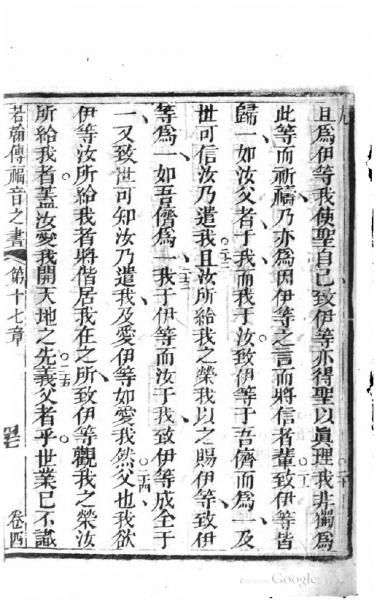 九
且爲伊等我使聖自己致伊等亦得聖以眞理我非獨爲
二十
此等而祈禱乃亦爲因伊等之言而將信者輩致伊等皆
二一
歸一如汝父者于我而我于汝致伊等于吾儕而爲一及
世可信汝乃遣我且汝所給我之榮我以之賜伊等致伊
二二
等爲一如吾儕爲一我于伊等而汝于我致伊等成全于
二三
一又致世可知汝乃遣我及愛伊等如愛我然父也我欲
二四
伊等汝所給我者將偕居我在之所致伊等觀我之榮汝
所給我者蓋汝愛我開天地之先義父者乎世業已不識
二五
若翰傳福音之書 第十七章 卷四
Google